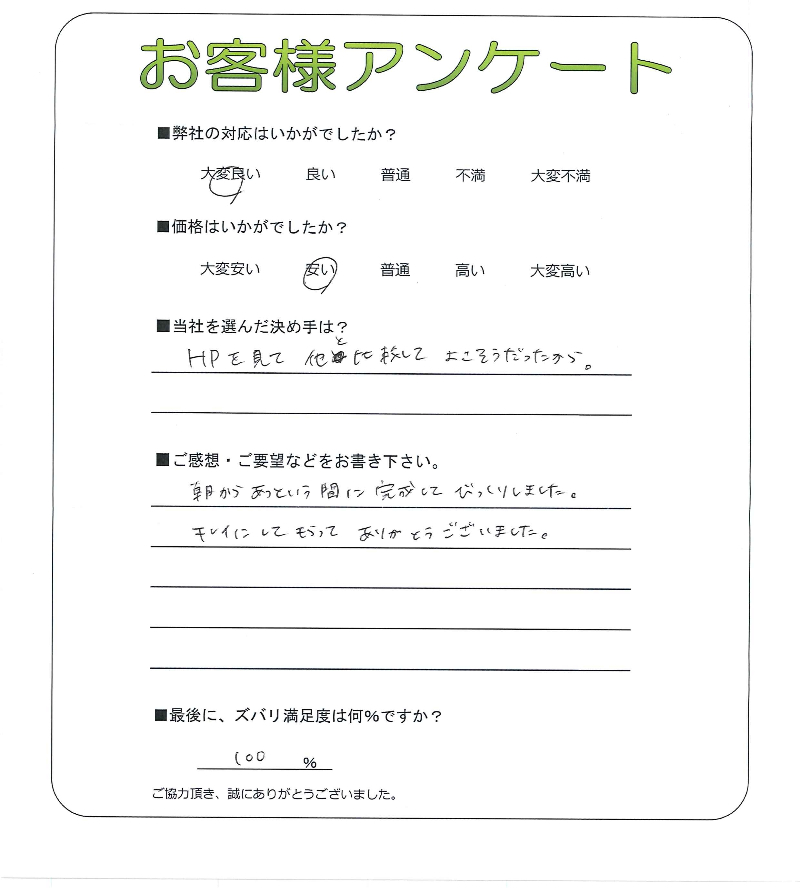 お客様アンケート
■弊社の対応はいかがでしたか？
大変良い 良い 普通 不満 大変不満
■価格はいかがでしたか？
大変安い 安い 普通 高い 大変高い
■当社を選んだ決め手は？
HPを見て 他と比較して よさそうだったから。
■ご感想・ご要望などをお書き下さい。
朝からあっという間に完成してびっくりしました。
キレイにしてもらって ありがとうございました。
■最後に、ズバリ満足度は何%ですか？
100 %
ご協力頂き、誠にありがとうございました。